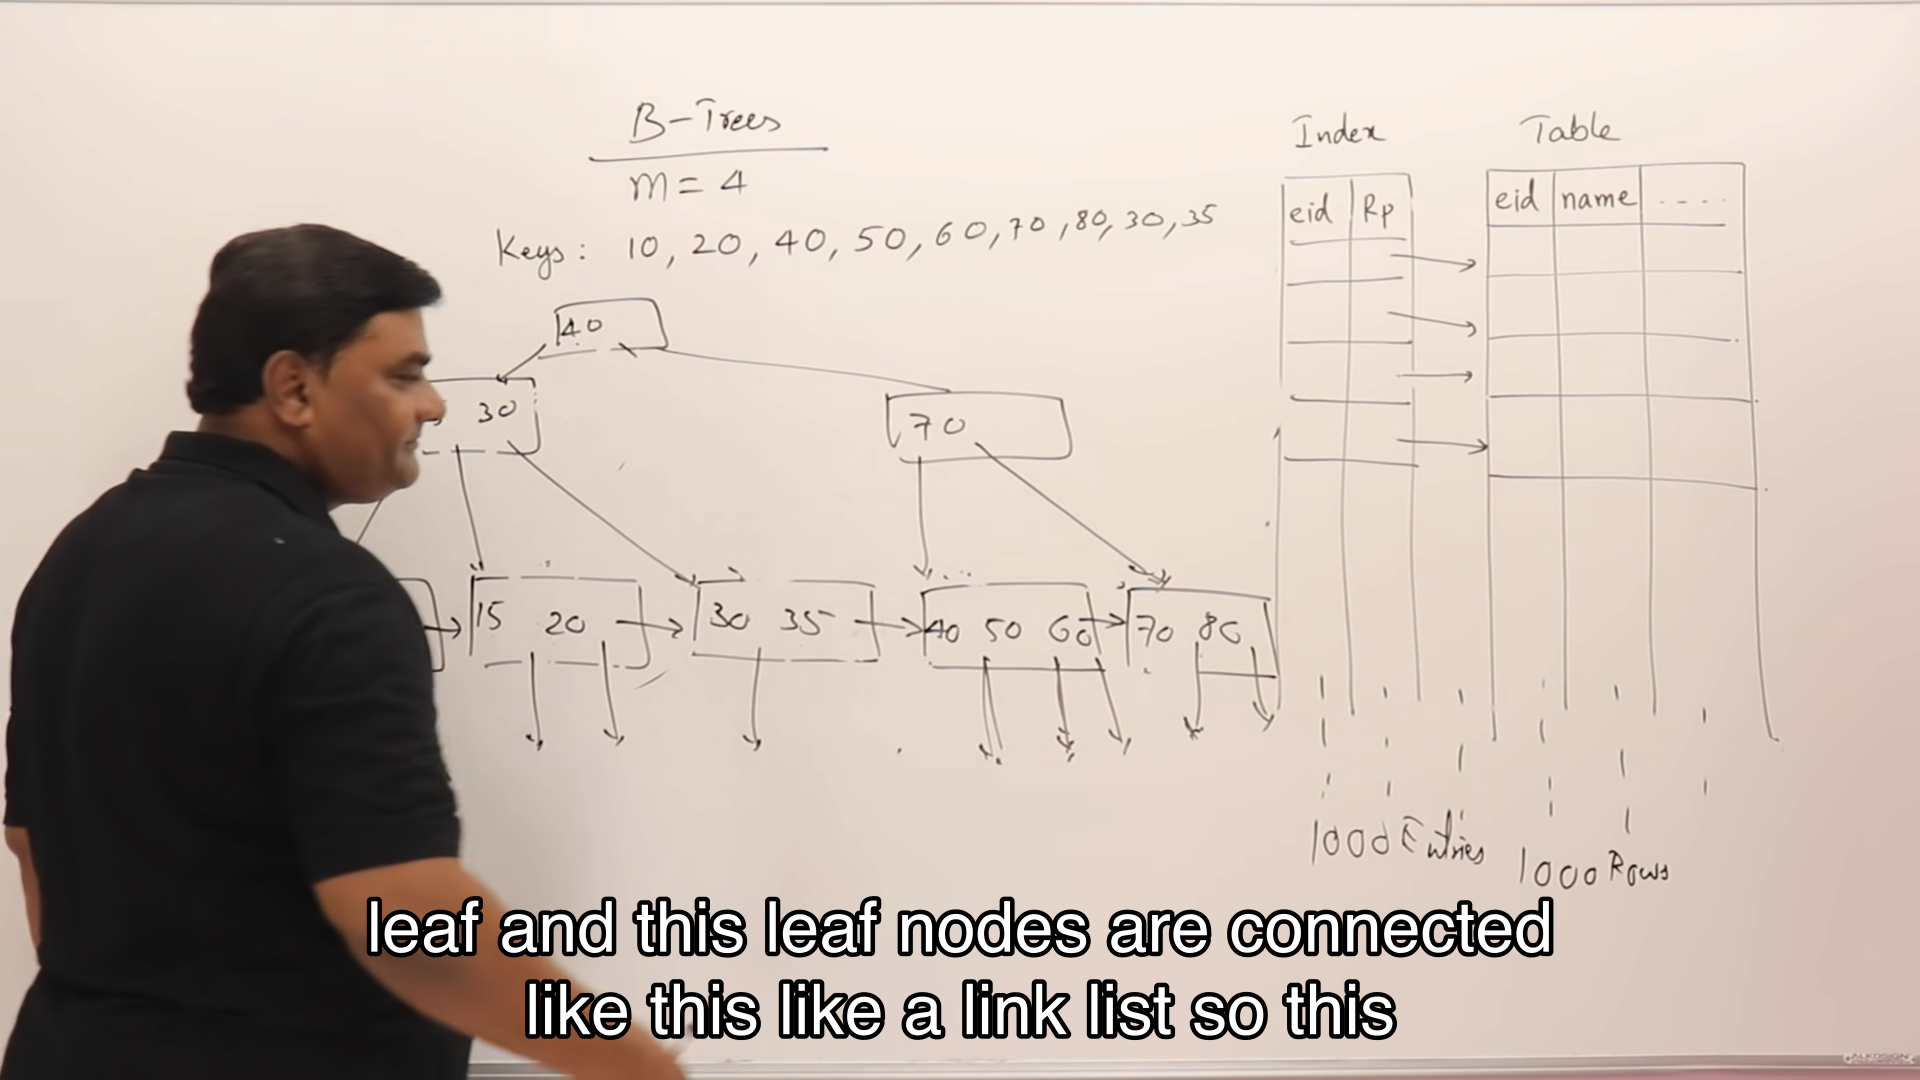 B-Trees
m = 4
Keys: 10, 20, 40, 50, 60, 70, 80, 30, 35
40
30
70
15 20
30 35
40 50 60
70 80
Index
eid Rp
Table
eid name ....
1000 Entries
1000 Rows
leaf and this leaf nodes are connected
like this like a link list so this